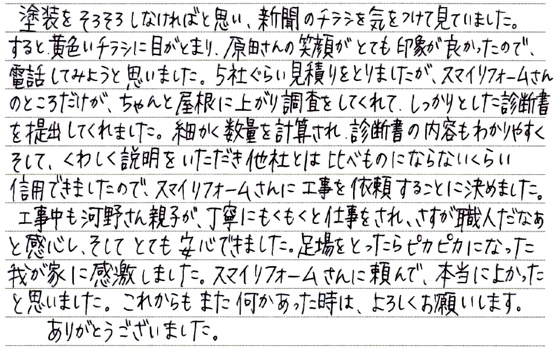 塗装をそろそろしなければと思い、新聞のチラシを気をつけて見ていました。
すると黄色いチラシに目がとまり、原田さんの笑顔がとても印象が良かったので、
電話してみようと思いました。5社ぐらい見積りをとりましたが、スマイリフォームさん
のところだけが、ちゃんと屋根に上がり調査をしてくれて、しっかりとした診断書
を提出してくれました。細かく数量を計算され、診断書の内容もわかりやすく
そして、くわしく説明をいただき他社とは比べものにならないくらい
信用できましたので、スマイリフォームさんに工事を依頼することに決めました。
工事中も河野さん親子が、丁寧にもくもくと仕事をされ、さすが職人だなぁ
と感心し、そしてとても安心できました。足場をとったらピカピカになった
我が家に感激しました。スマイリフォームさんに頼んで、本当によかった
と思いました。これからもまた何かあった時は、よろしくお願いします。
ありがとうございました。